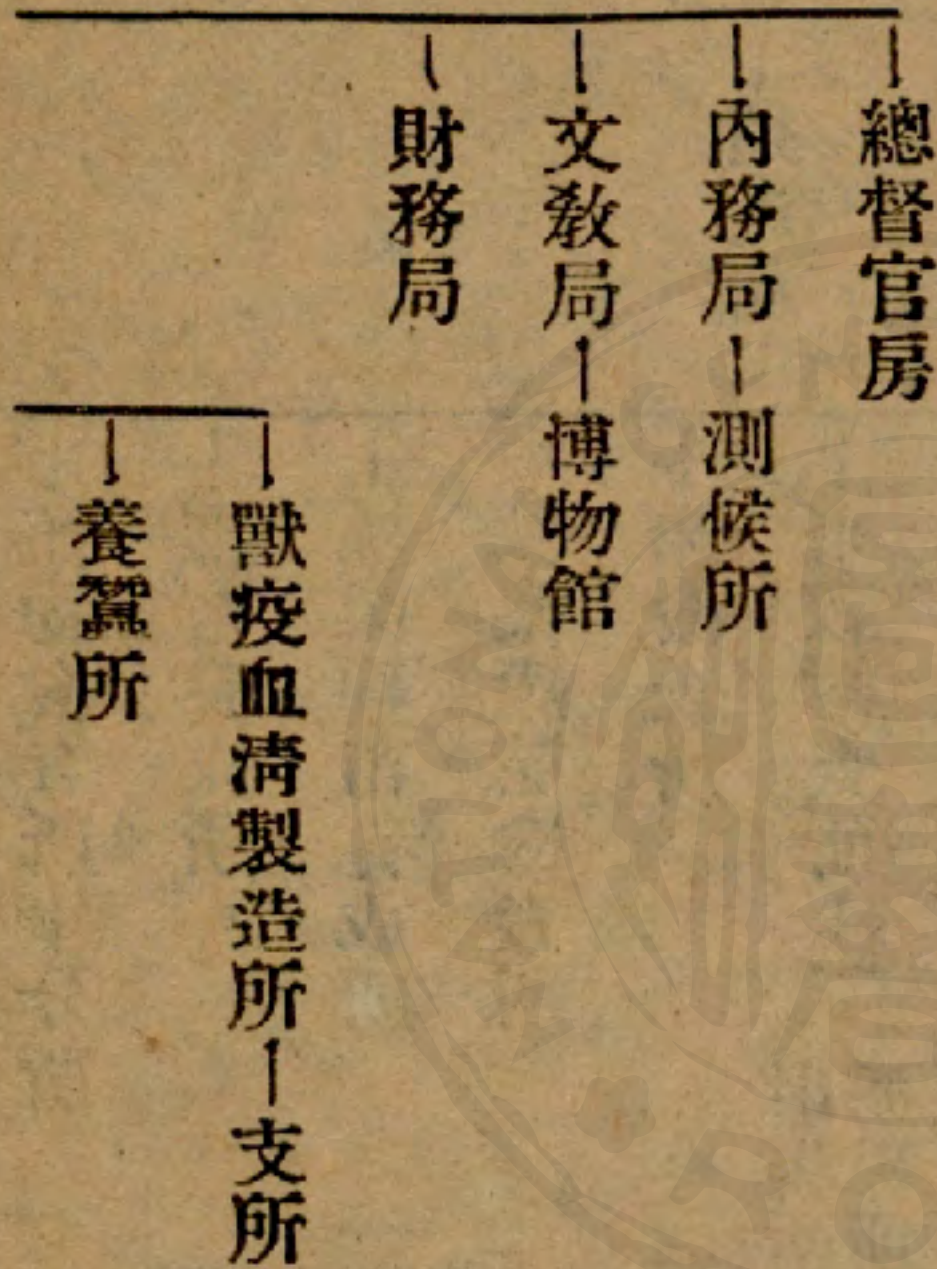 總督官房
內務局—測候所
文敎局—博物館
財務局
獸疫血淸製造所—支所
養蠶所